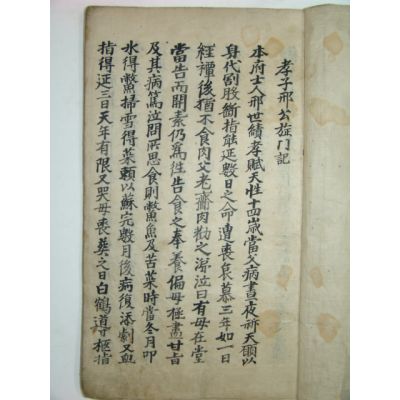 孝子邢公㫌门記
本府士人邢世績孝賦天性十四歲當父病晝夜祈天願以
身代割股斷指能延數日之命遭喪哀慕三年如一日
經禫後猶不食肉父老齎肉勸之涕泣曰有母在堂
當告而開素仍爲徃告食之奉養偏母極盡甘旨
及其病篤泣問所思食則鱉魚及苦菜時當冬月叩
氷得鱉掃雪得菜賴以蘇完數月後病復添劇又血
指得延三日天年有限又哭母喪葬之日白鶴導柩指